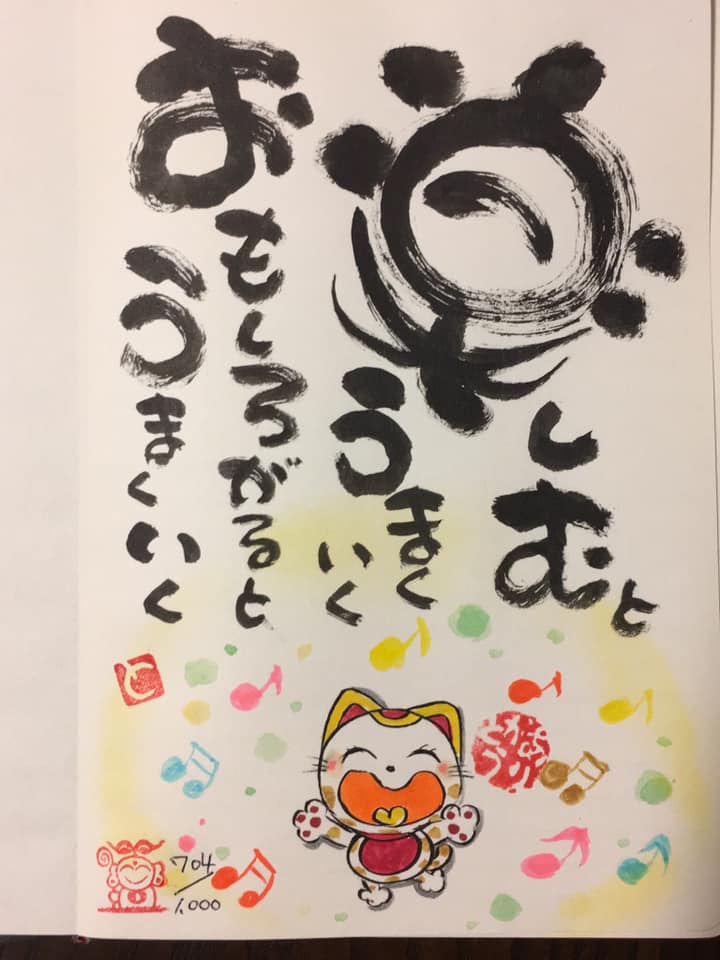 楽しむと
うまく
いく
おもしろがると
うまくいく
704/1,000